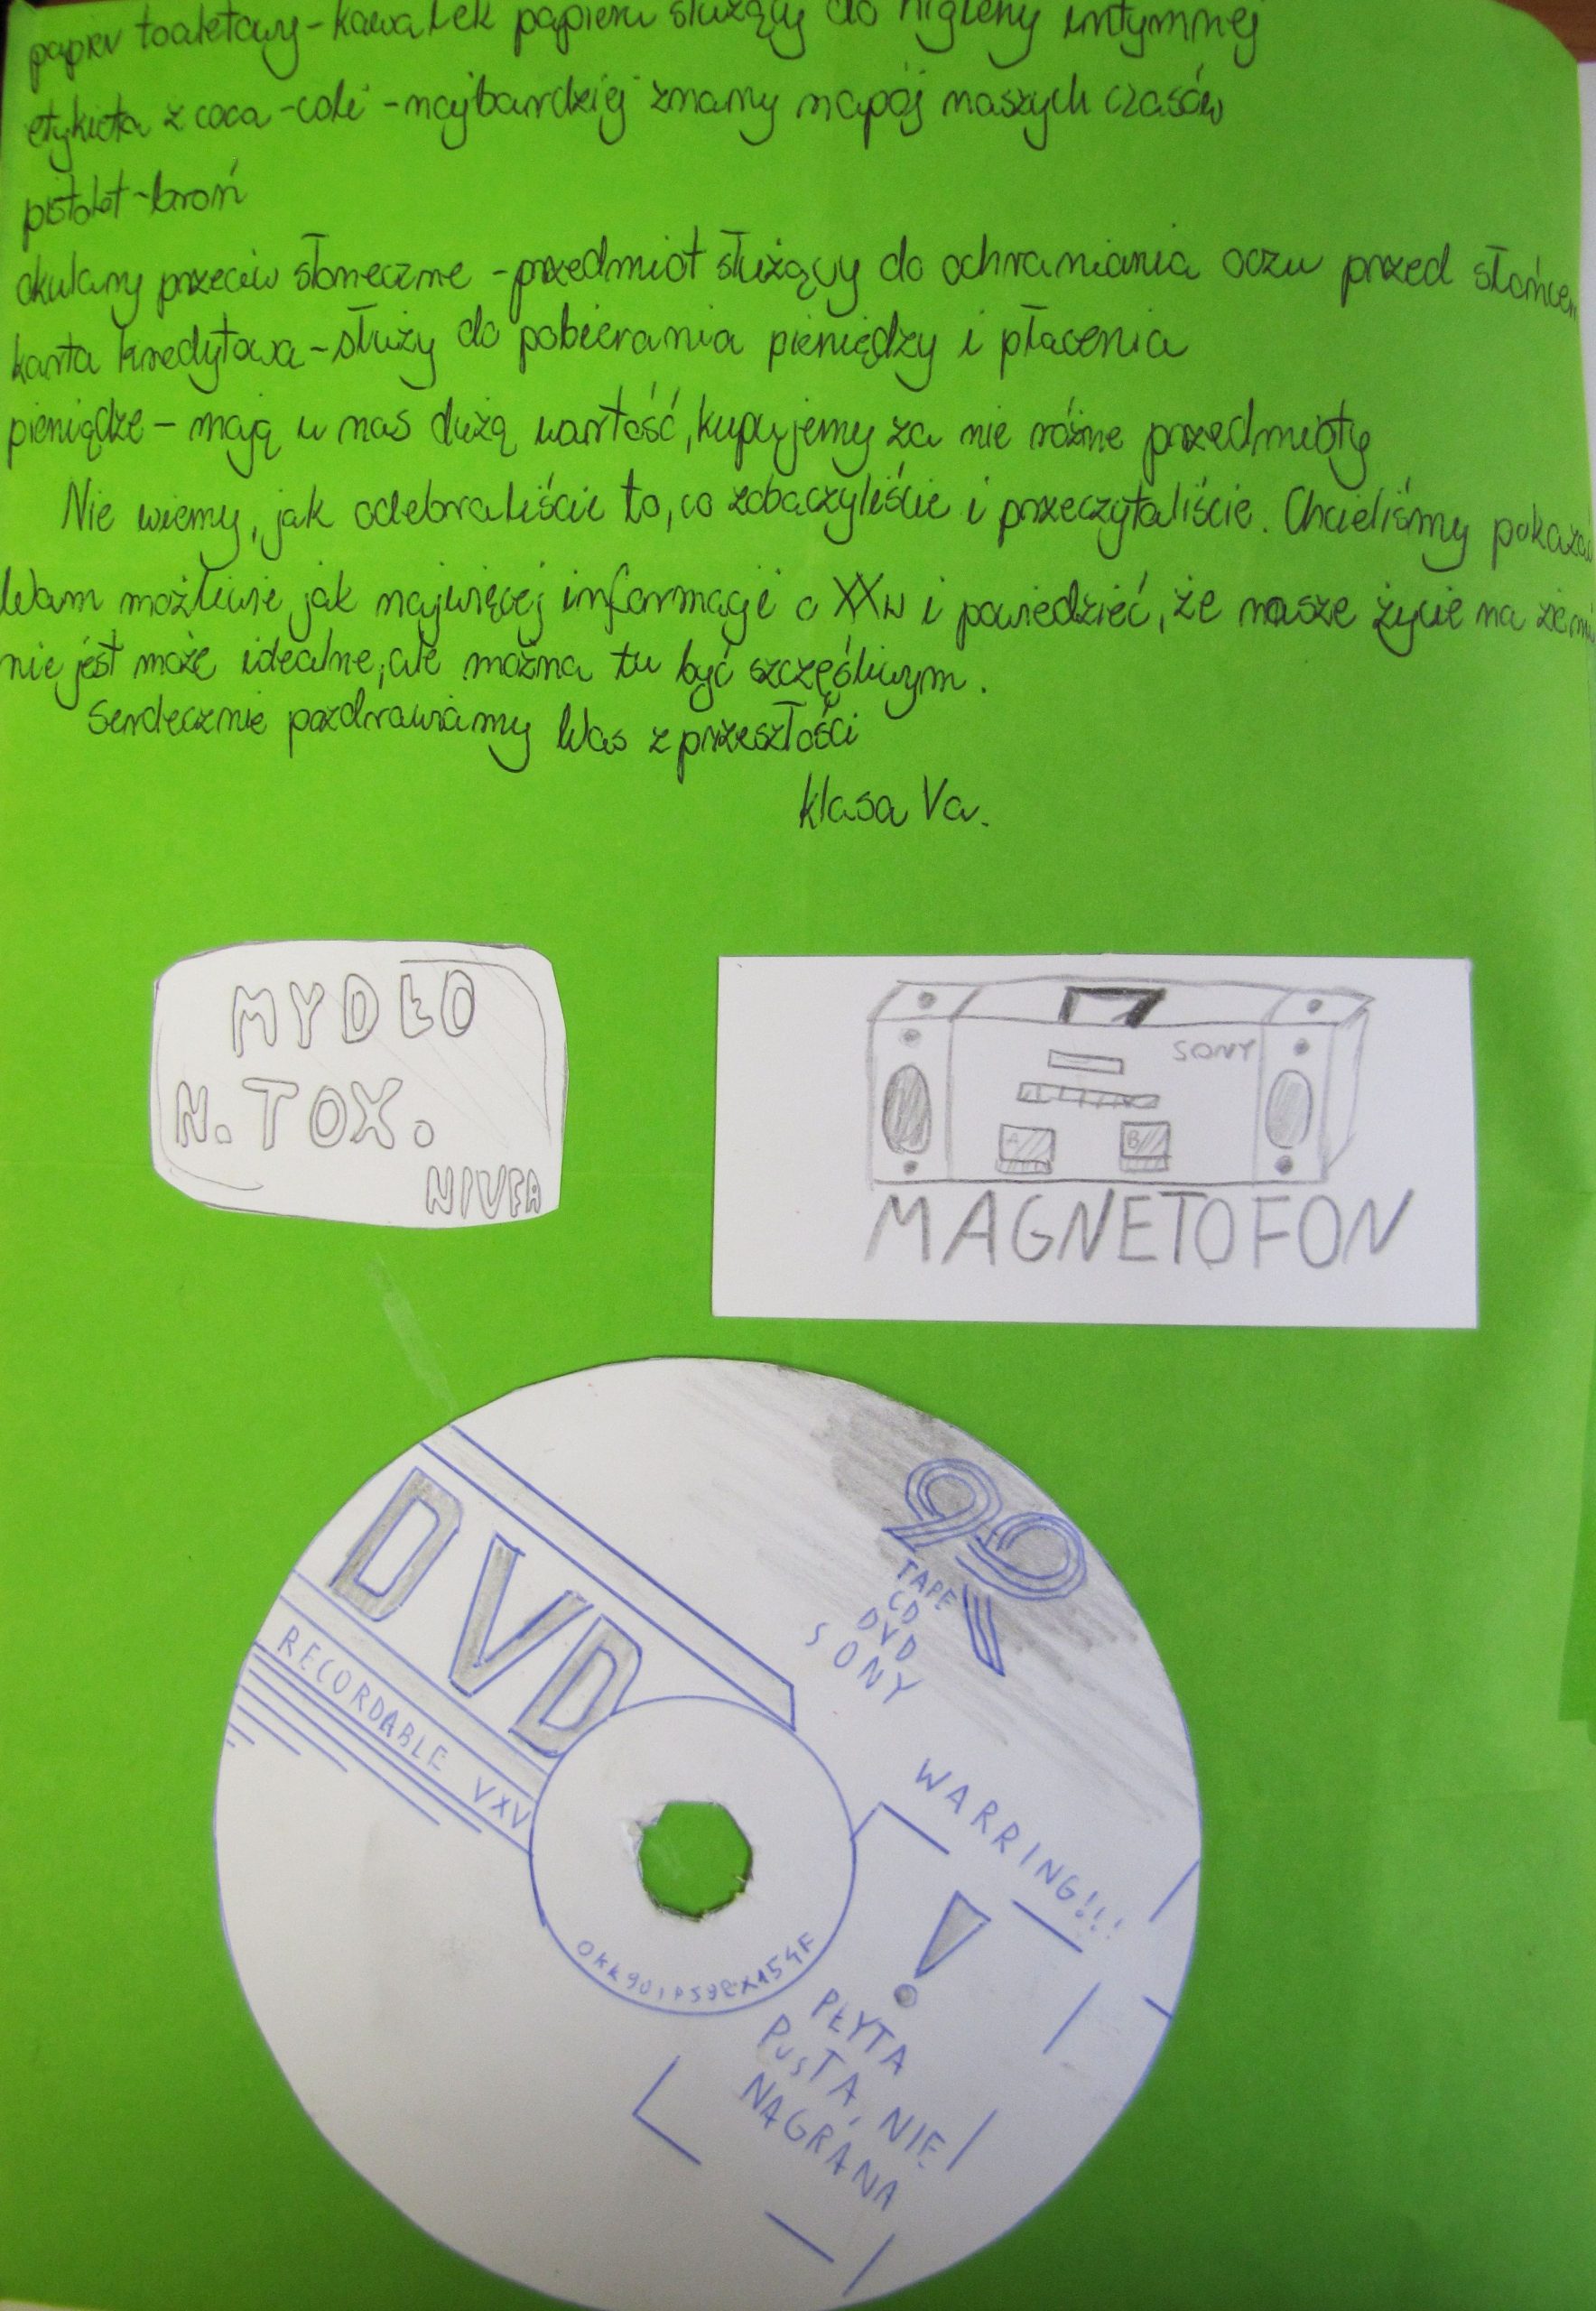 papier toaletowy - kawałek papieru służący do higieny intymnej
etykieta z coca - coli - najbardziej znany napój naszych czasów
pistolet - broń
okulary przeciw słoneczne - przedmiot służący do ochraniania oczu przed słońcem
karta kredytowa - służy do pobierania pieniędzy i płacenia
pieniądze - mają u nas dużą wartość, kupujemy za nie różne przedmioty
Nie wiemy, jak odebraliście to, co zobaczyliście i przeczytaliście. Chcieliśmy pokazać
Wam możliwie jak najwięcej informacji o XXw i powiedzieć, że nasze życie na ziemi
nie jest może idealne, ale można tu być szczęśliwym.
Serdecznie pozdrawiamy Was z przeszłości
klasa Va.
MYDŁO
N. TOX.
NIVEA
SONY
A B
MAGNETOFON
DVD
RECORDABLE VXV
90
TAPE
CD
DVD
SONY
WARRING!!!
!
PŁYTA
PUSTA, NIE
NAGRANA